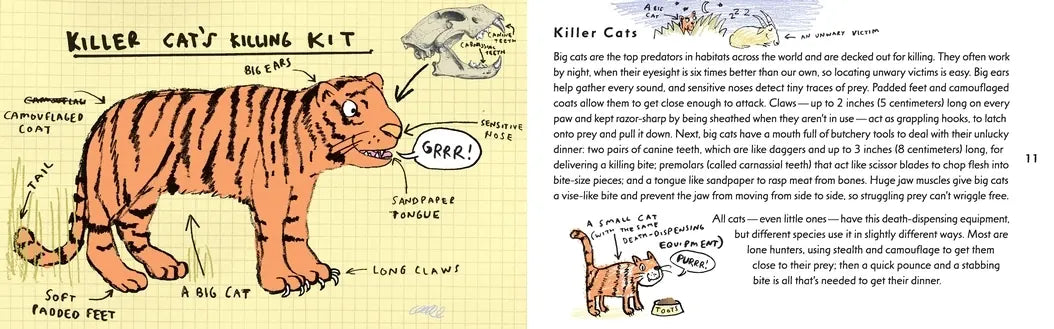 KILLER CAT'S KILLING KIT
CANINE
TEETH
CARNASSIAL
TEETH
BIG EARS
CAMOUFLAGED
COAT
SENSITIVE
NOSE
GRRR!
TAIL
SANDPAPER
TONGUE
LONG CLAWS
A BIG CAT
SOFT
PADDED FEET
A BIG
CAT
ZZZ
AN UNWARY VICTIM
Killer Cats
Big cats are the top predators in habitats across the world and are decked out for killing. They often work
by night, when their eyesight is six times better than our own, so locating unwary victims is easy. Big ears
help gather every sound, and sensitive noses detect tiny traces of prey. Padded feet and camouflaged
coats allow them to get close enough to attack. Claws—up to 2 inches (5 centimeters) long on every
paw and kept razor-sharp by being sheathed when they aren't in use—act as grappling hooks, to latch
onto prey and pull it down. Next, big cats have a mouth full of butchery tools to deal with their unlucky
dinner: two pairs of canine teeth, which are like daggers and up to 3 inches (8 centimeters) long, for
delivering a killing bite; premolars (called carnassial teeth) that act like scissor blades to chop flesh into
bite-size pieces; and a tongue like sandpaper to rasp meat from bones. Huge jaw muscles give big cats
a vise-like bite and prevent the jaw from moving from side to side, so struggling prey can't wriggle free.
11
A SMALL CAT
(WITH THE SAME
DEATH-DISPENSING
EQUIPMENT)
PURRR!
TOOTS
All cats—even little ones—have this death-dispensing equipment,
but different species use it in slightly different ways. Most are
lone hunters, using stealth and camouflage to get them
close to their prey; then a quick pounce and a stabbing
bite is all that's needed to get their dinner.